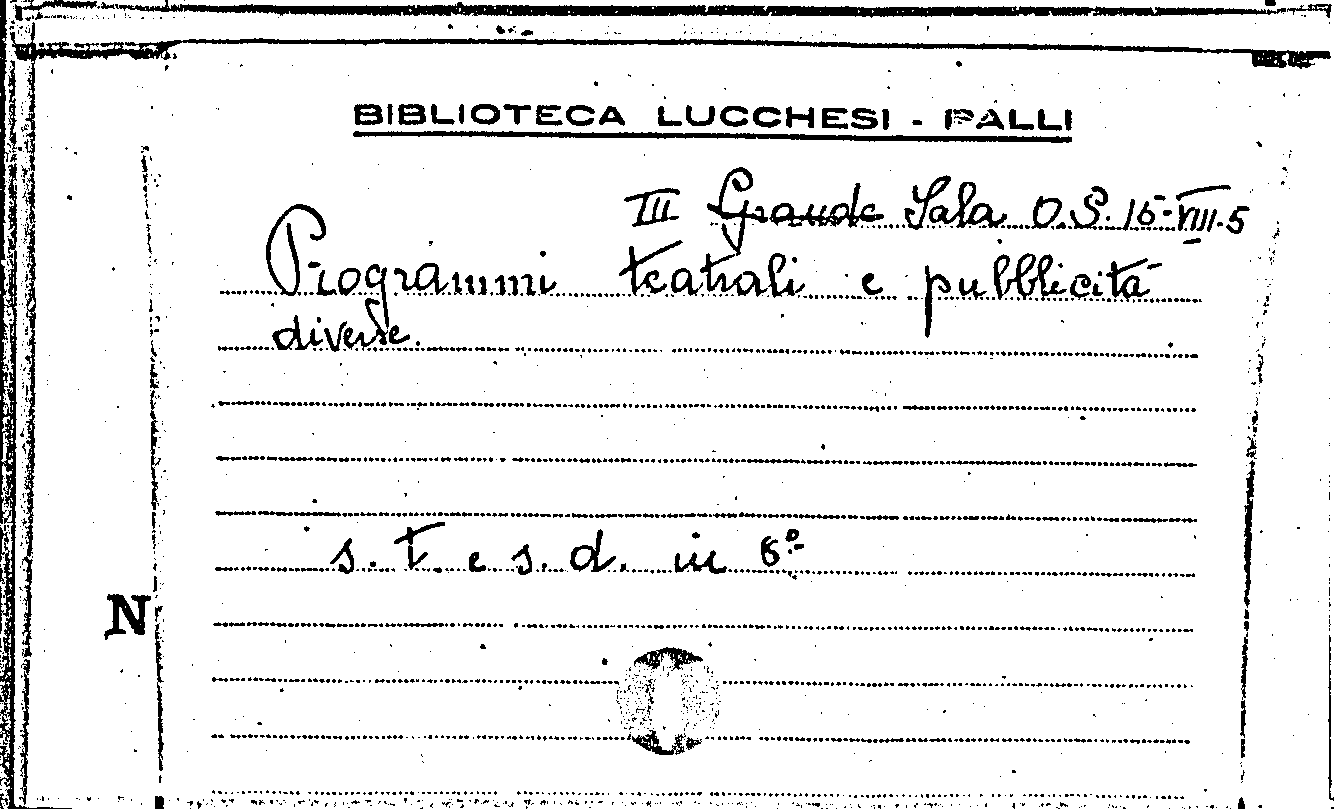 BIBLIOTECA LUCCHESI - PALLI
III Grande Sala O.S. 15-VIII.5
Programmi teatrali e pubblicità
diverse.
s. t. e s. d. in 8°-
N